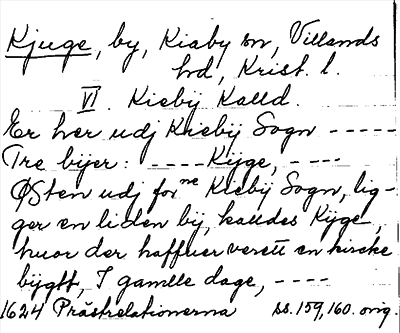 Kjuge, by, Kiaby sn, Villands
hd, Krist. l.
VI. Kiebij Kalld.
Er her udj Kiebij Sogn -----
Tre bijer: ----Kijge, ----
Østen udj forne Kiebij Sogn, lig-
ger en liden bij, kalldes Kijge,
huor der haffuer verett en kircke
bijgtt, I gamlle dage, ----
1624 Prästrelationerna ss. 159, 160. orig.